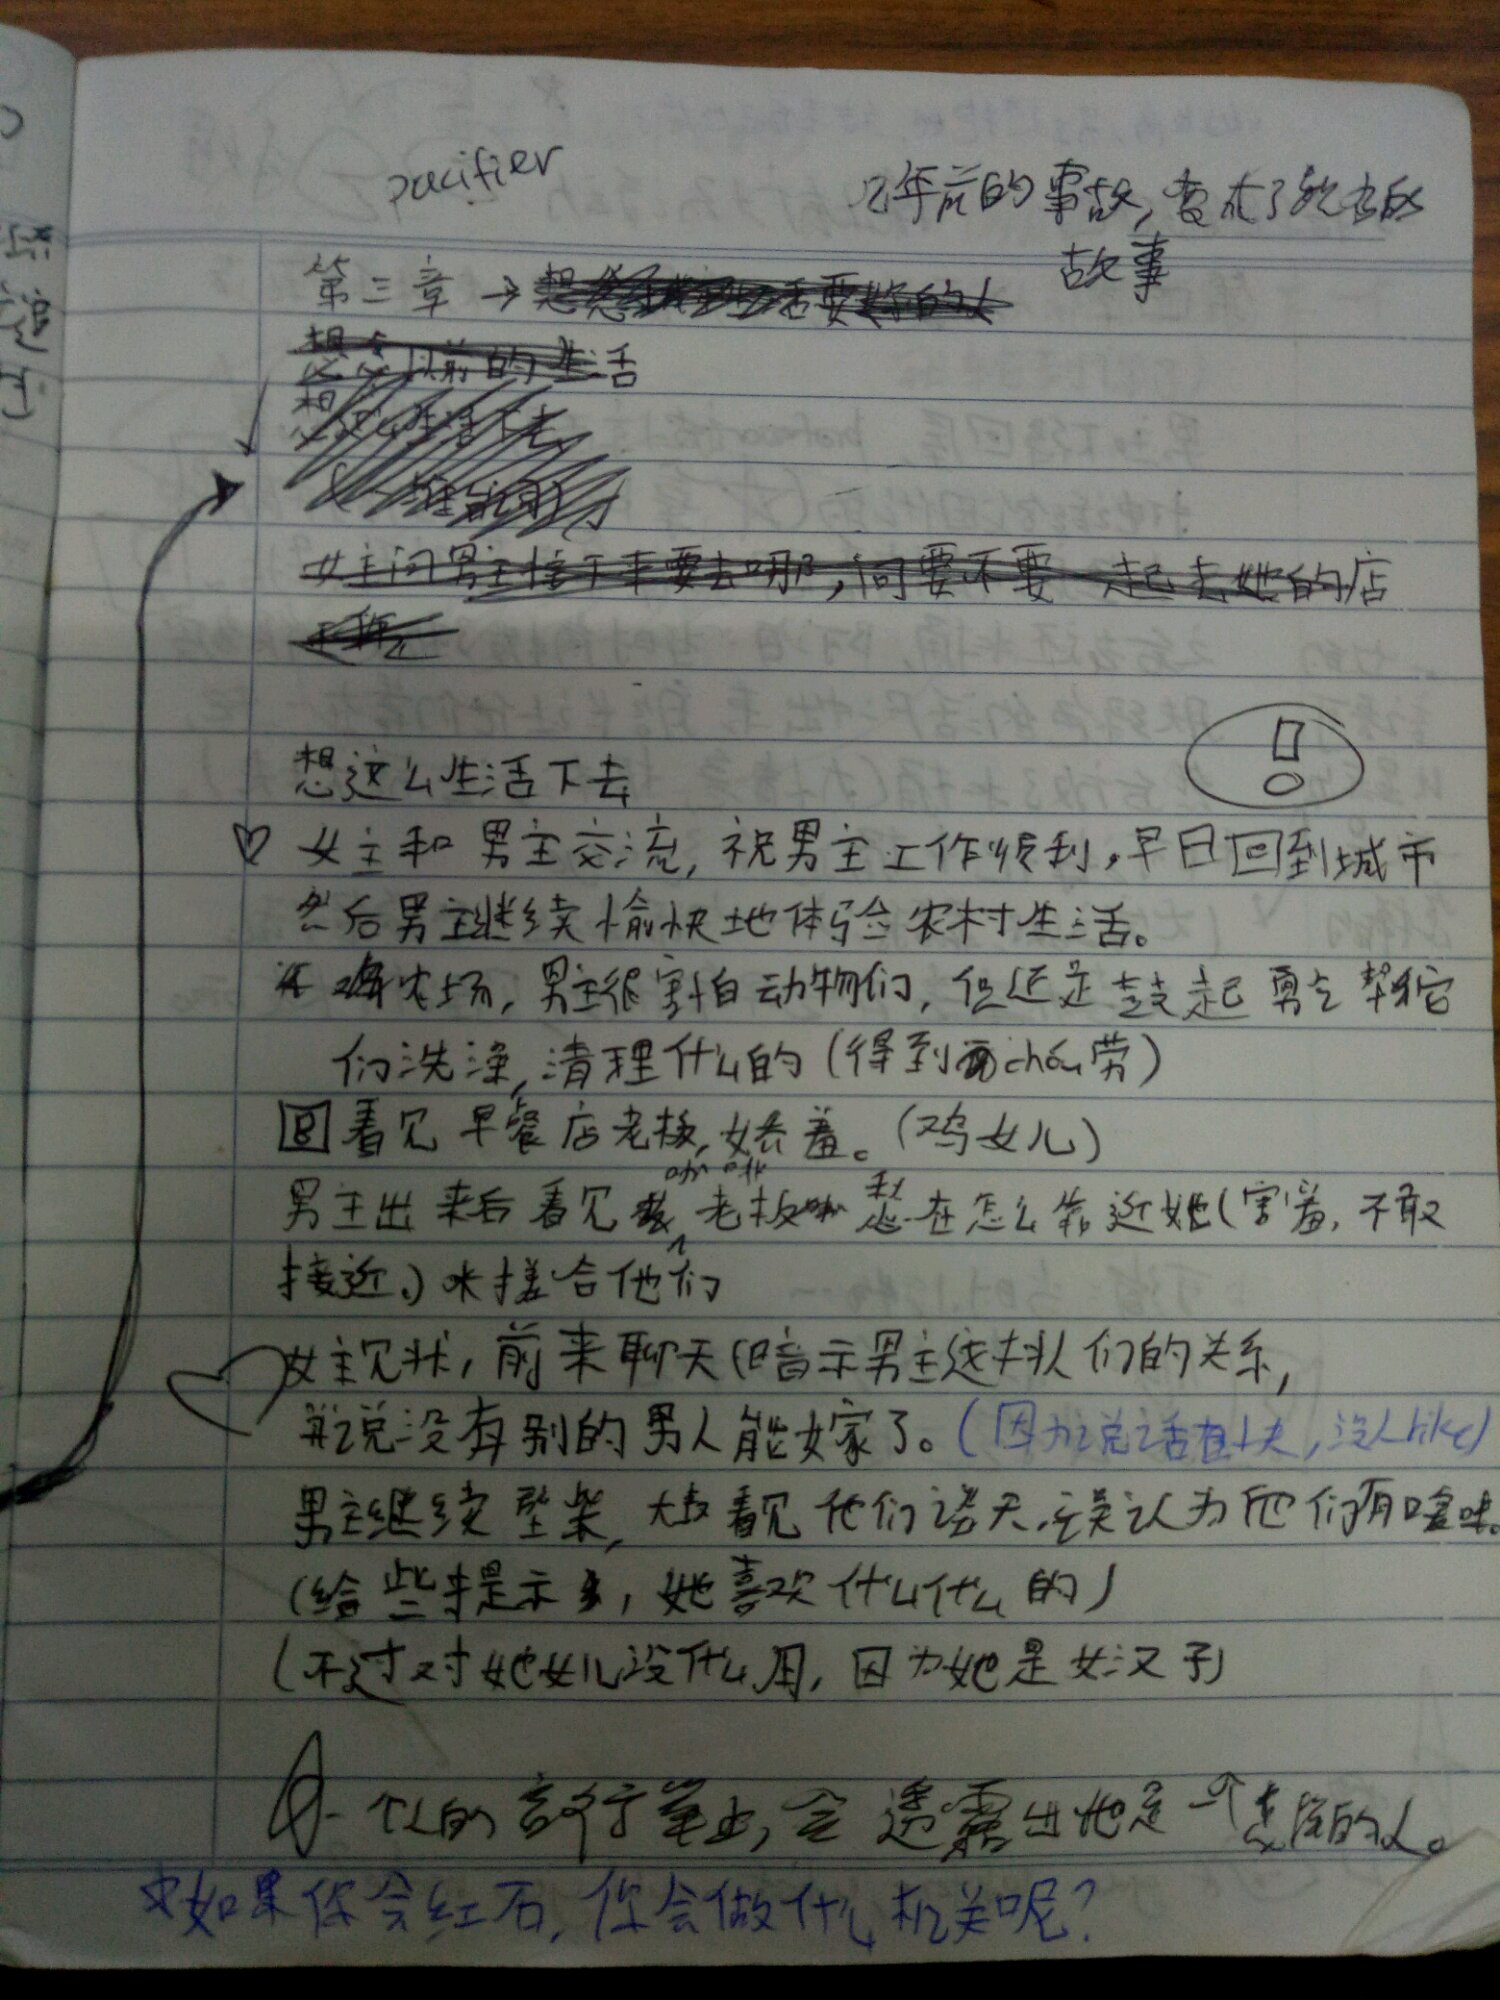 pacifier
几年前的事故,变成了现在的
故事
第三章 →
想念以前的生活
想这么生活下去
女主问男主接下来要去哪,问要不要一起去她的店
想这么生活下去
女主和男主交流,祝男主工作顺利,早日回到城市
然后男主继续愉快地体验农村生活。
农场,男主很害怕动物们,但还是鼓起勇气帮它
们洗澡,清理什么的(得到 chóu劳)
看见早餐店老板,娇羞。(鸡女儿)
男主出来后看见咖啡老板 愁在怎么靠近她(害羞,不敢
接近)来搓合他们
女主见状,前来聊天(暗示男主 们的关系,
并说没有别的男人能嫁了。(因为说话 ,没人like)
男主继续 , 看见他们谈天,误认为他们有 。
(给些提示 ,她喜欢什么什么的)
(不过对她女儿没什么用,因为她是女汉子)
一个人的言行举止,会透露出他是一个怎样的人。
如果你会红石,你会做什么机关呢?